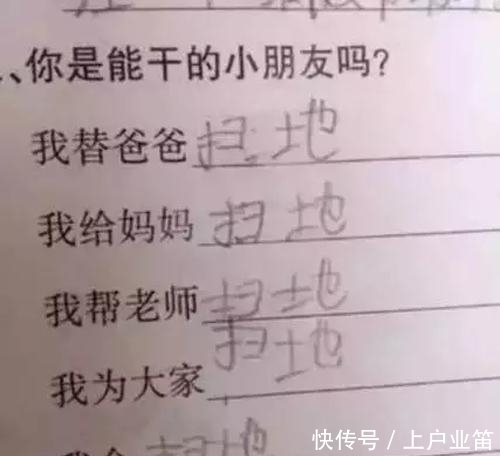 、你是能干的小朋友吗?
我替爸爸扫地
我给妈妈扫地
我帮老师扫地
我为大家扫地
扫地
快传号／上户业笛